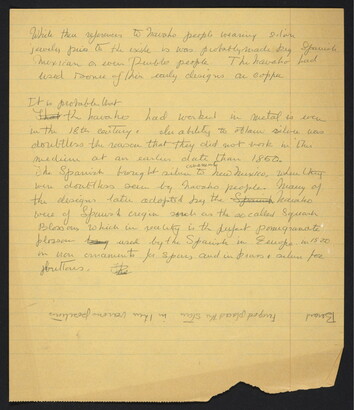 While there references to Navaho people wearing silver
jewelry prior to the exile is was probably made by Spanish
Mexican or even Pueblo people. The Navaho had
used some of their early designs on copper
It is probable that
That the navaho had worked in metal is even
in the 18th century. inability to obtain silver was
doubtless the reason that they did not work in this
medium at an earlier date than 1860s
The Spanish brought silver to New Mexico, which
were doubtless seen by Navaho peoples Many of
the designs later adopted by the Spanish navaho
were of Spanish origin such as the so called Squash
Blossom which in reality is the perfect pomegranate
blossom used by the Spanish in Europe in 1500
on iron ornaments for spurs and in brass & silver for
buttons.
in their various positions